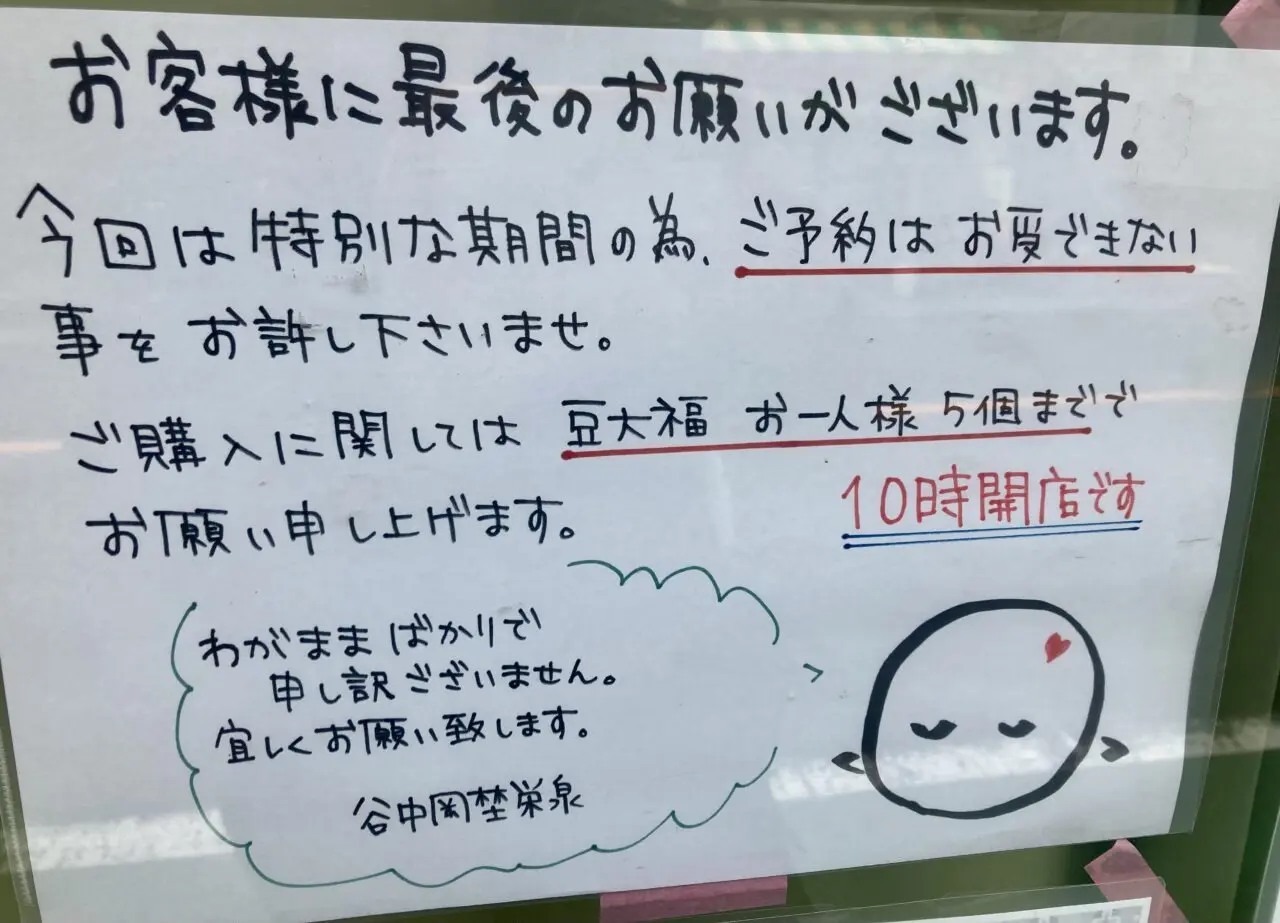 お客様に最後のお願いがございます。
今回は特別な期間の為、ご予約はお受できない
事をお許し下さいませ。
ご購入に関しては 豆大福 お一人様 5個までで
お願い申し上げます。
10時開店です
わがままばかりで
申し訳ございません。
宜しくお願い致します。
谷中岡埜栄泉